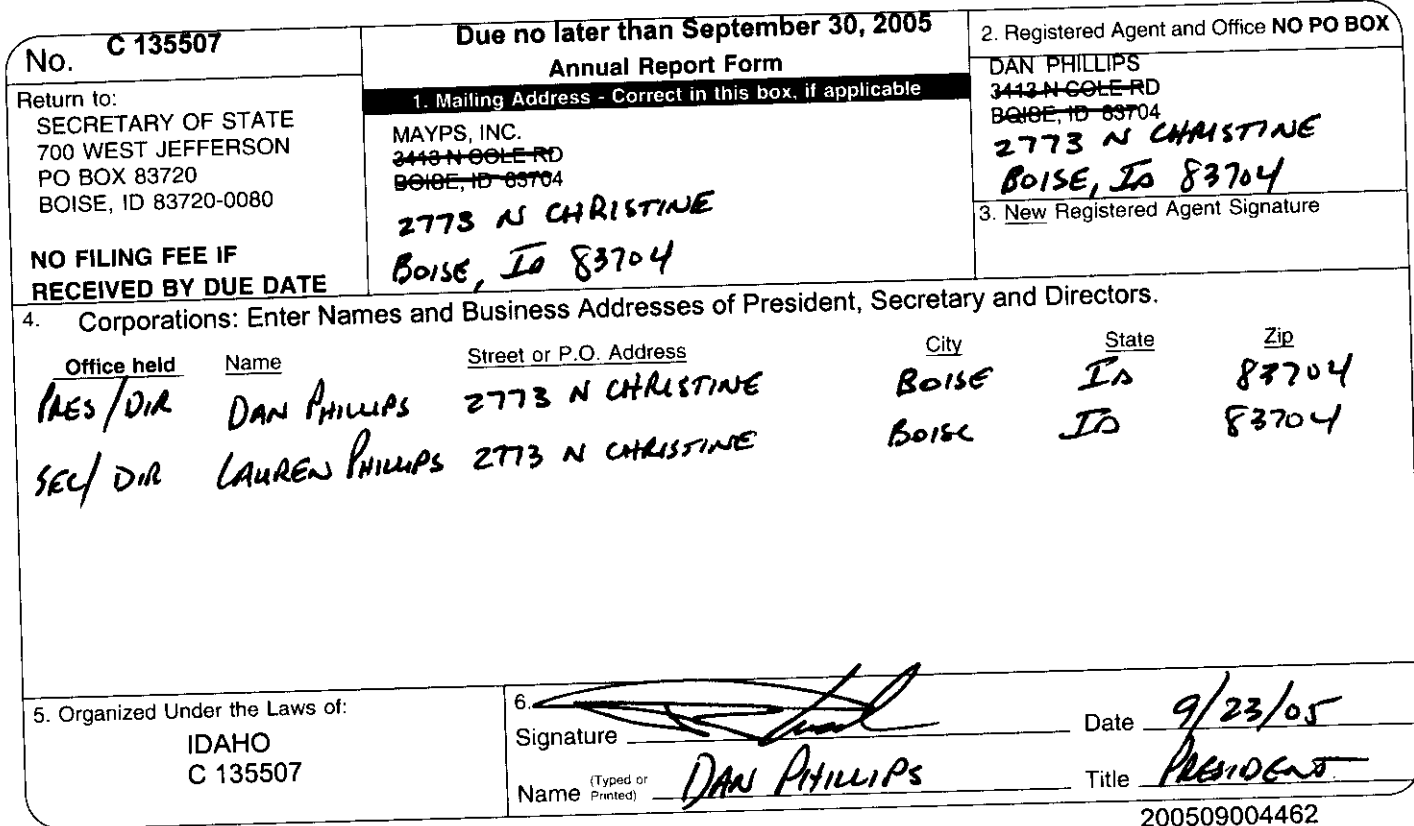 No. C 135507
Return to:
SECRETARY OF STATE
700 WEST JEFFERSON
PO BOX 83720
BOISE, ID 83720-0080
NO FILING FEE IF
RECEIVED BY DUE DATE
Due no later than September 30, 2005
Annual Report Form
1. Mailing Address - Correct in this box, if applicable
MAYPS, INC.
3413 N COLE RD
BOISE, ID 83704
2773 N CHRISTINE
BOISE, ID 83704
2. Registered Agent and Office NO PO BOX
DAN PHILLIPS
3413 N COLE RD
BOISE, ID 83704
2773 N CHRISTINE
BOISE, ID 83704
3. New Registered Agent Signature
4. Corporations: Enter Names and Business Addresses of President, Secretary and Directors.
Office held Name Street or P.O. Address City State Zip
PRES/DIR DAN PHILLIPS 2773 N CHRISTINE BOISE ID 83704
SEC/DIR LAUREN PHILLIPS 2773 N CHRISTINE BOISE ID 83704
5. Organized Under the Laws of:
IDAHO
C 135507
6.
Signature
Date 9/23/05
Name (Typed or Printed) DAN PHILLIPS
Title PRESIDENT
200509004462